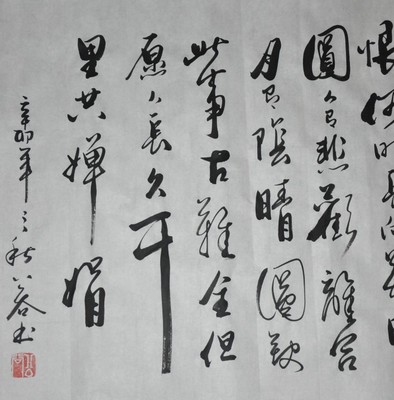 恨何時長向別
圓人有悲歡離合
月有陰晴圓缺
此事古難全但
愿人長久千
里共嬋娟
辛卯年秋書